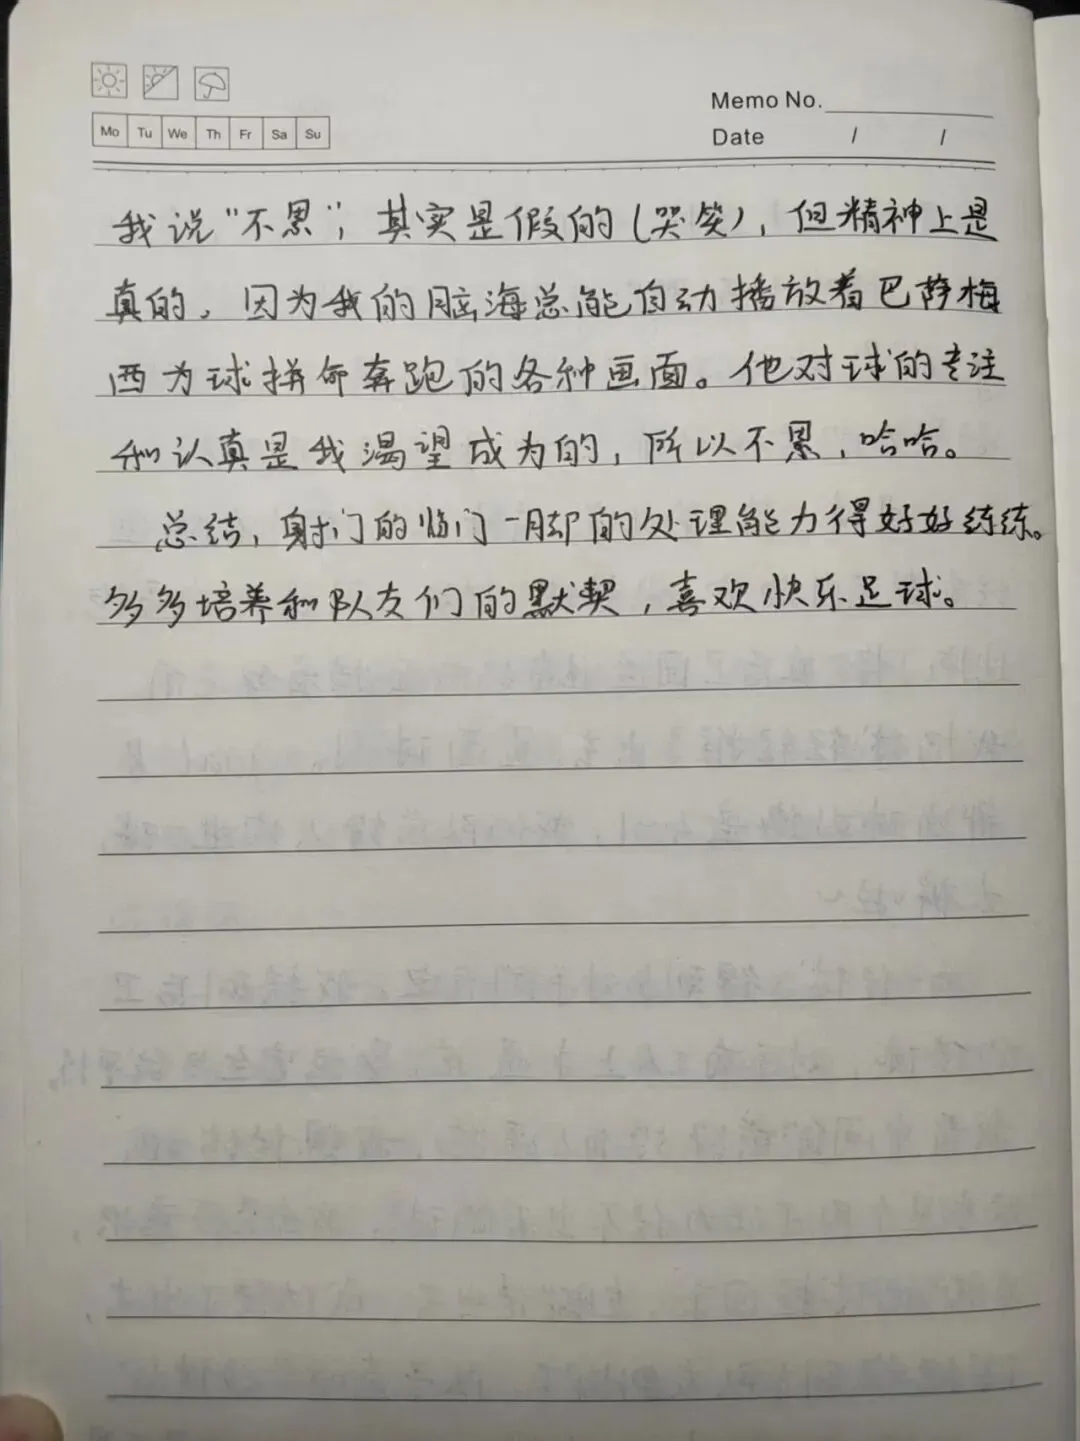 Memo No.
Mo Tu We Th Fr Sa Su
Date / /
我说“不累”，其实是假的（哭笑），但精神上是
真的，因为我的脑海总能自动播放着巴萨梅
西为球拼命奔跑的各种画面。他对球的专注
和认真是我渴望成为的，所以不累，哈哈。
总结，射门的临门一脚的处理能力得好好练练。
多多培养和队友们的默契，喜欢快乐足球。